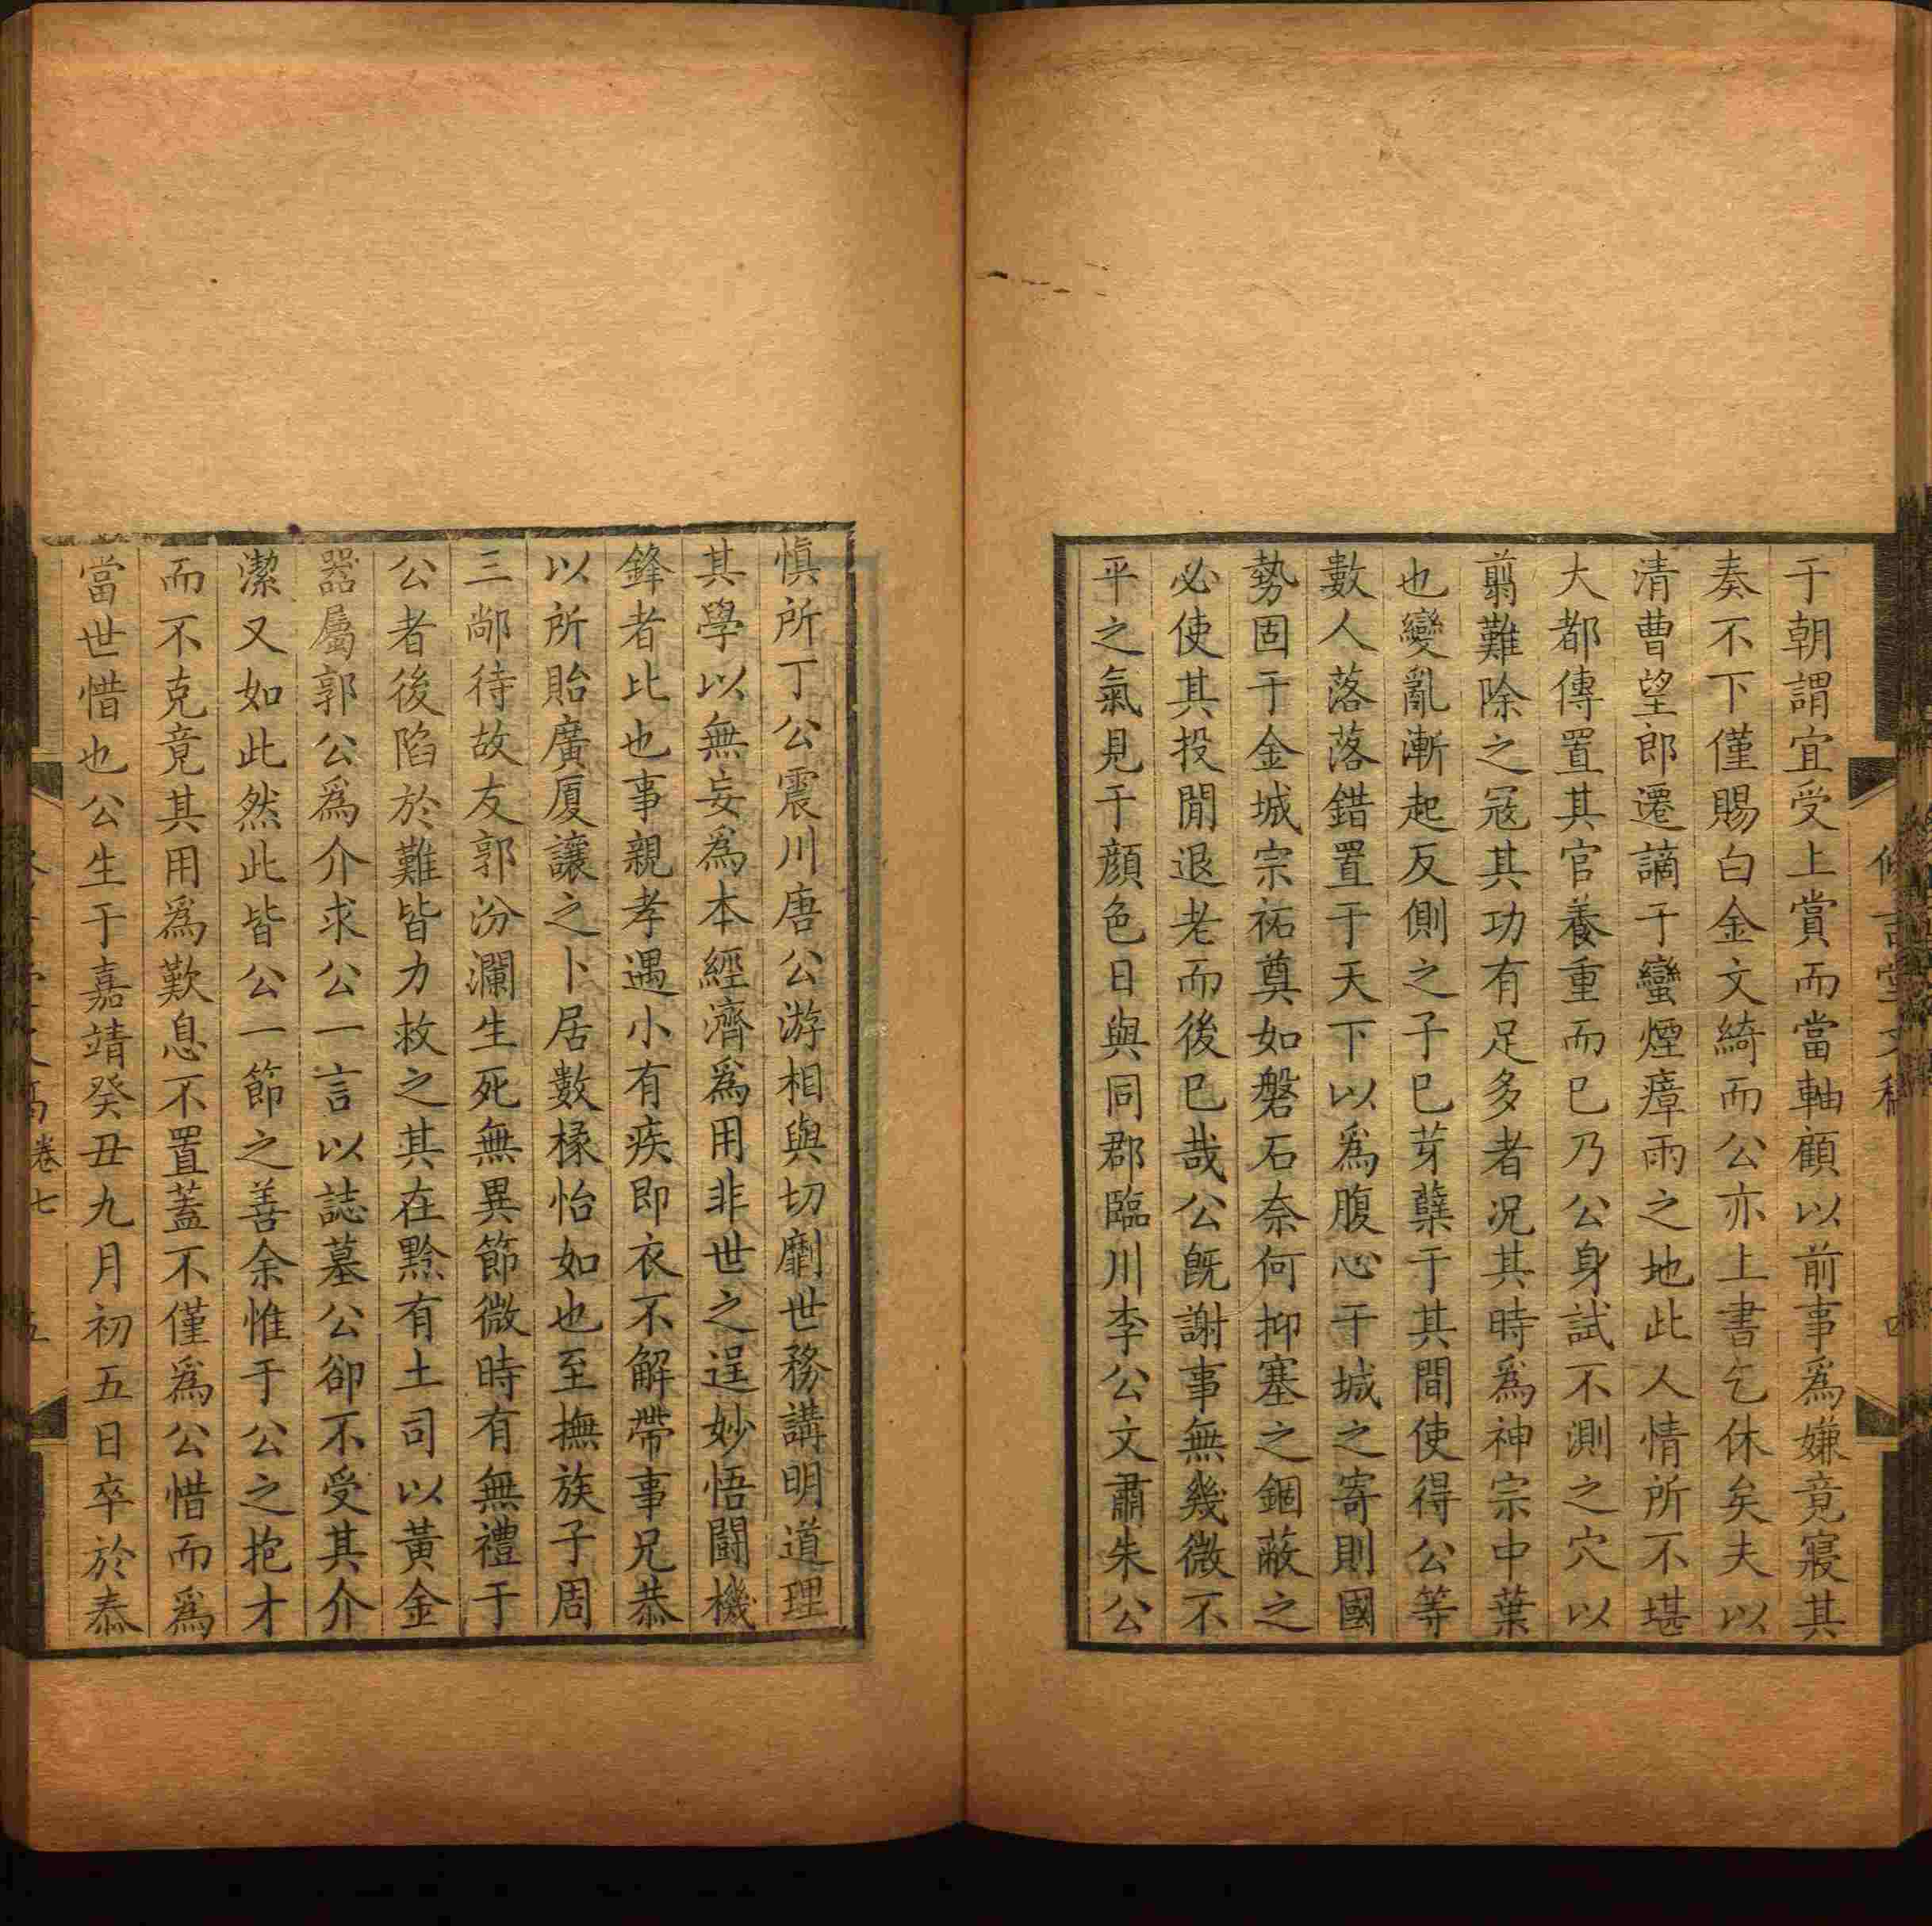 于朝謂宜受上賞而當軸顧以前事爲嫌竟寢其
奏不下僅賜白金文綺而公亦上書乞休矣夫以
清曹望郎遷謫于蠻煙瘴雨之地此人情所不堪
大都傳置其官養重而已乃公身試不測之穴以
翦難除之冦其功有足多者况其時爲神宗中葉
也變亂漸起反側之子已芽蘖于其間使得公等
數人落落錯置于天下以爲腹心干城之寄則國
勢固于金城宗祏奠如磐石奈何抑塞之錮蔽之
必使其投閒退老而後已哉公旣謝事無幾微不
平之氣見于顏色日與同郡臨川李公文肅朱公
慎所丁公震川唐公游相與切劘世務講明道理
其學以無妄爲本經濟爲用非世之逞妙悟鬪機
鋒者比也事親孝遇小有疾即衣不解帶事兄恭
以所貽廣厦讓之卜居數椽怡如也至撫族子周
三鄰待故友郭汾瀾生死無異節微時有無禮于
公者後陷於難皆力救之其在黔有土司以黃金
器屬郭公爲介求公一言以誌墓公卻不受其介
潔又如此然此皆公一節之善余惟于公之抱才
而不克竟其用爲歎息不置蓋不僅爲公惜而爲
當世惜也公生于嘉靖癸丑九月初五日卒於泰
卷七
五